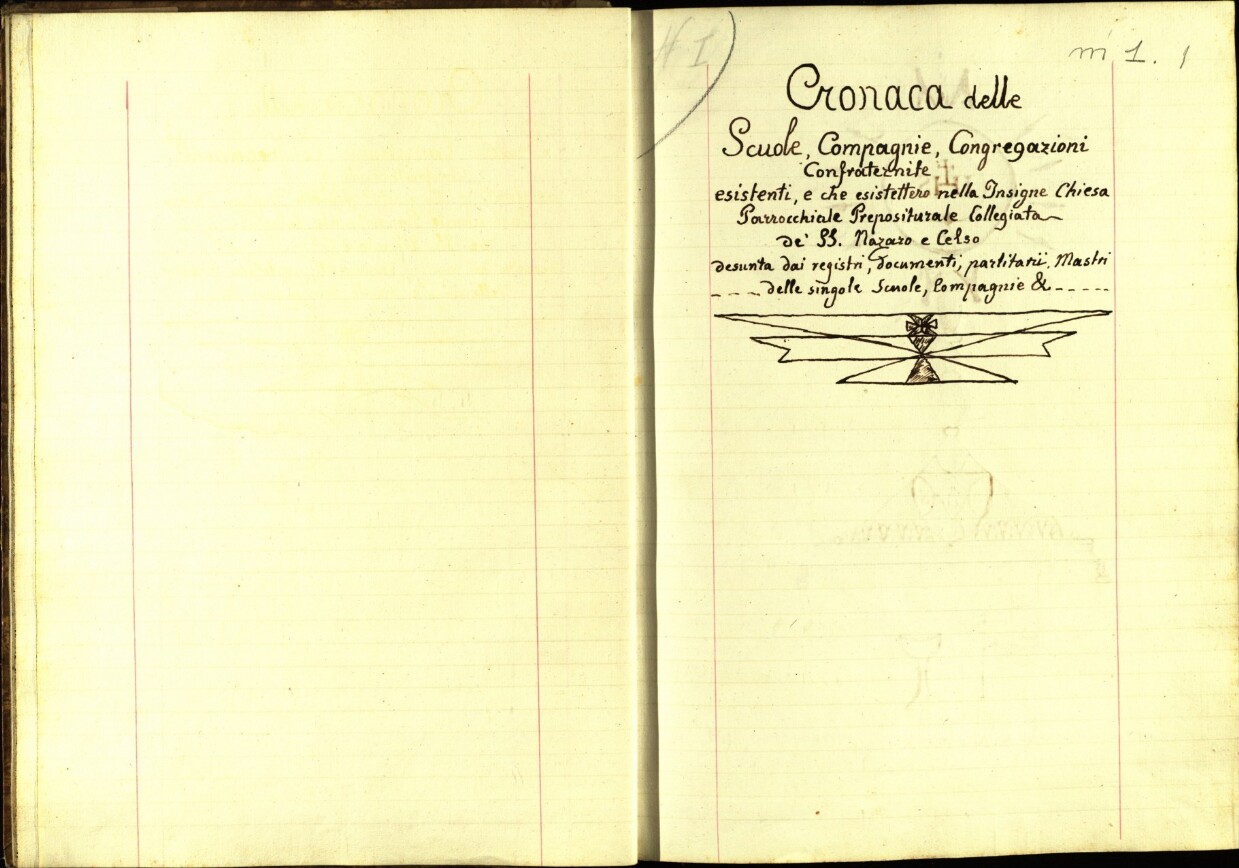 N I
m 1. 1
Cronaca delle
Scuole, Compagnie, Congregazioni
Confraternite
esistenti, e che esistettero nella Insigne Chiesa
Parrocchiale Prepositurale Collegiata
de' SS. Nazaro e Celso
desunta dai registri, documenti, partitarii, Mastri
_ _ _ delle singole Scuole, Compagnie & _ _ _ _ _